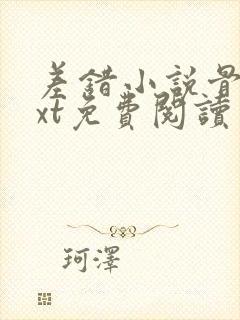 差錯小說
xt免費閱讀
珂澤